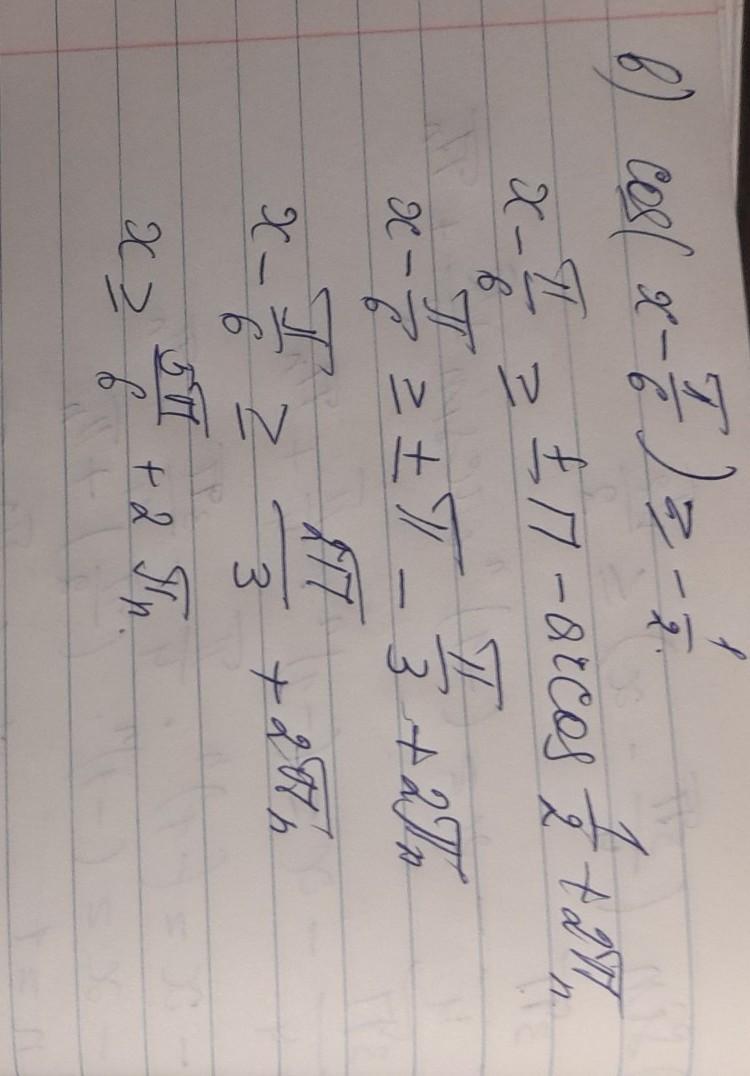 в) cos(x - π/6) ≥ - 1/2.
x - π/6 ≥ ± П - arcos 1/2 + 2πn
x - π/6 ≥ ± π - π/3 + 2πn
x - π/6 ≥ 2π/3 + 2πn
x ≥ 5π/6 + 2πn.